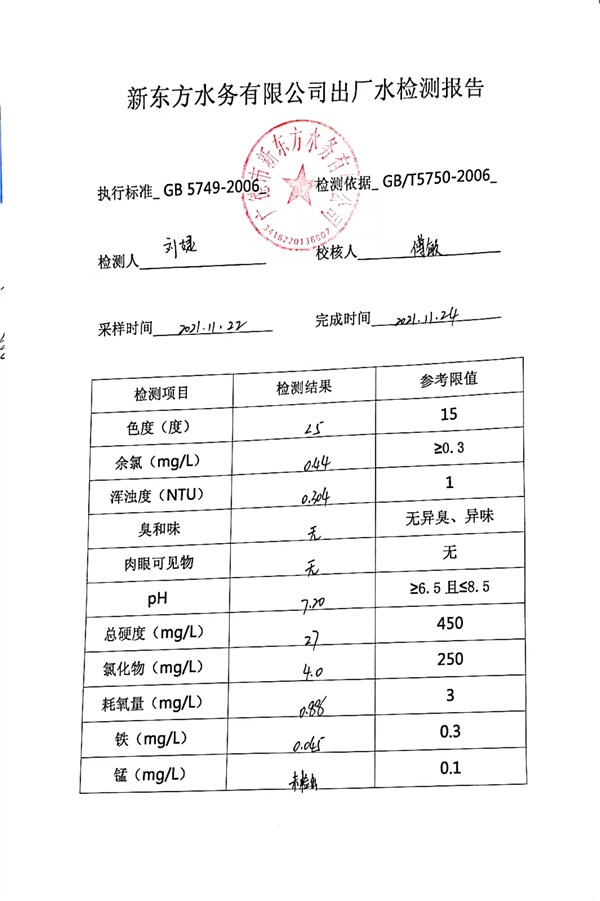 新东方水务有限公司出厂水检测报告
广德市新东方水务有限公司
3416220136007
执行标准_ GB 5749-2006_ 检测依据_ GB/T5750-2006_
检测人 刘婕 校核人 傅敏
采样时间 2021.11.22 完成时间 2021.11.24
检测项目 检测结果 参考限值
色度（度） <5 15
余氯（mg/L） 0.44 ≥0.3
浑浊度（NTU） 0.304 1
臭和味 无 无异臭、异味
肉眼可见物 无 无
pH 7.20 ≥6.5 且≤8.5
总硬度（mg/L） 27 450
氯化物（mg/L） 4.0 250
耗氧量（mg/L） 0.886 3
铁（mg/L） 0.045 0.3
锰（mg/L） 未检出 0.1